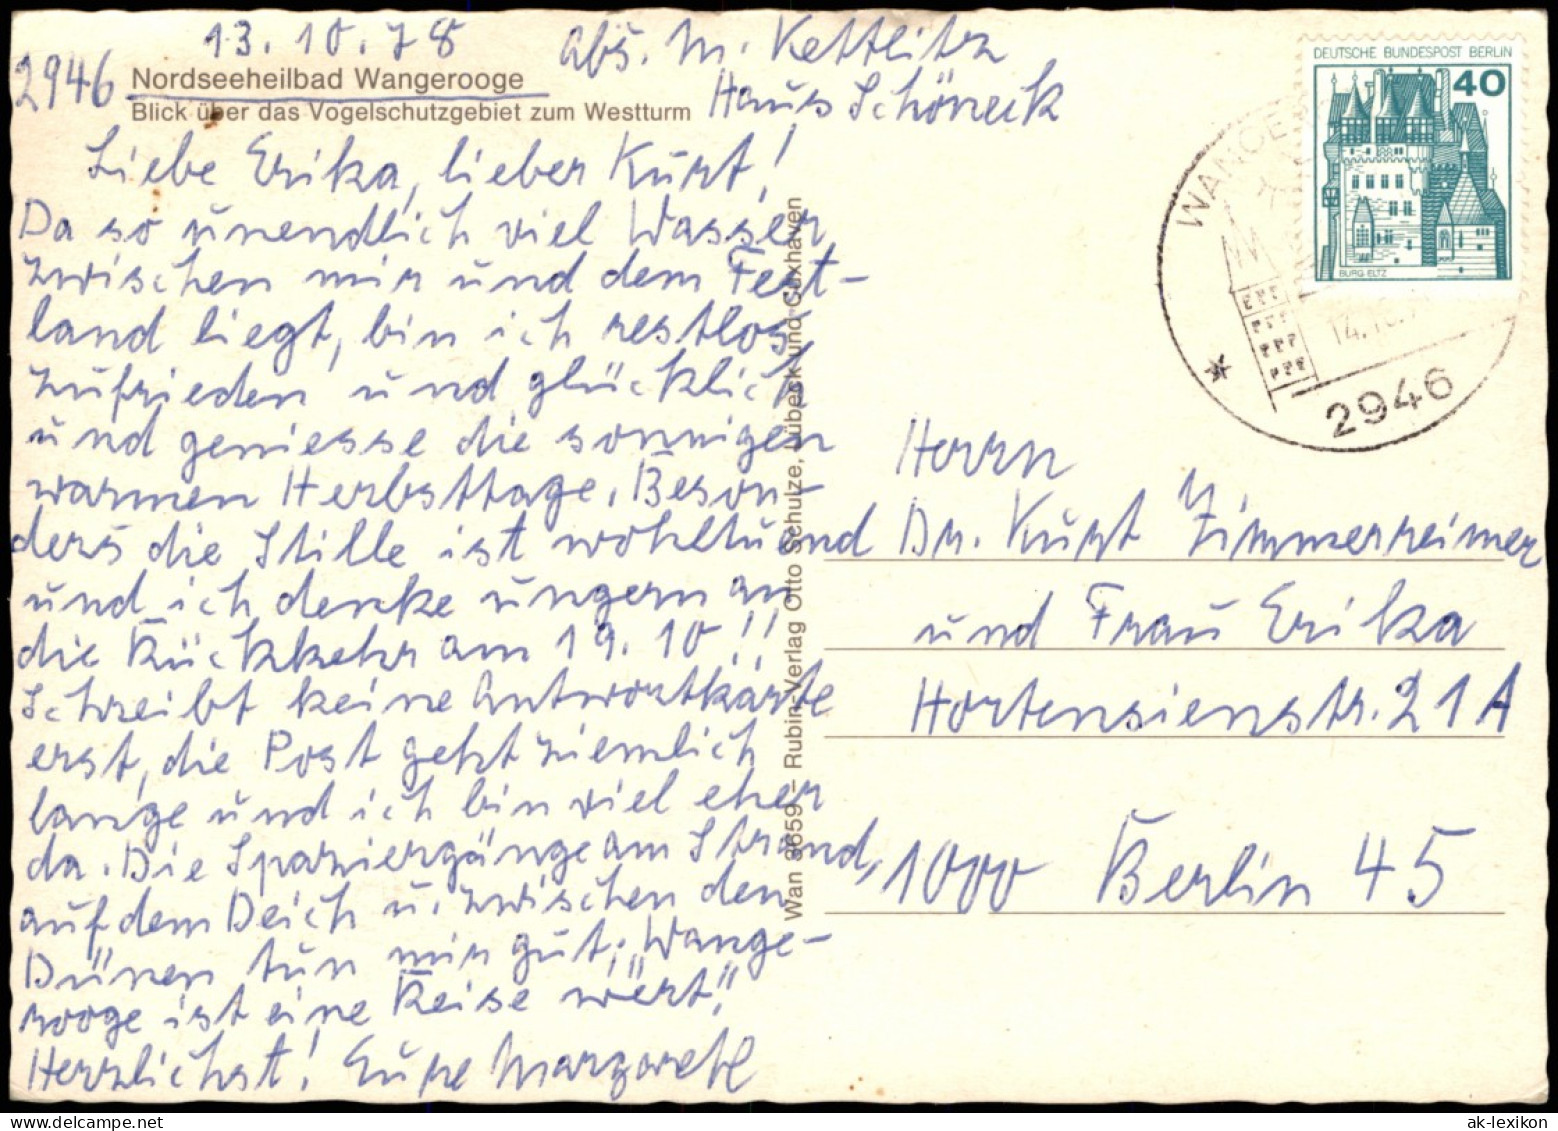 13.10.78
Abs. M. Kettlitz
2946 Nordseeheilbad Wangerooge
Haus Schöneck
Blick über das Vogelschutzgebiet zum Westturm
Liebe Erika, lieber Kurt!
Da so unendlich viel Wasser
zwischen mir und dem Fest-
land liegt, bin ich restlos
zufrieden und glücklich
und geniesse die sonnigen
warmen Herbsttage. Beson-
ders die Stille ist wohltuend
und ich denke ungern an
die Rückkehr am 19.10!!
Schreibt keine Antwortkarte
erst, die Post geht ziemlich
lange und ich bin viel eher
da. Die Spaziergänge am Strand,
auf dem Deich u. zwischen den
Dünen tun mir gut. „Wange-
rooge ist eine Reise wert"!
Herzlichst! Eure Margarete
Wan 8659 – Rubin-Verlag Otto Schulze, Lübeck und Cuxhaven
DEUTSCHE BUNDESPOST BERLIN
40
BURG ELTZ
WANGE
14.10.7
2946
Herrn
Dr. Kurt Zimmerreimer
und Frau Erika
Hortensienstr. 21A
1000 Berlin 45
ak-lexikon